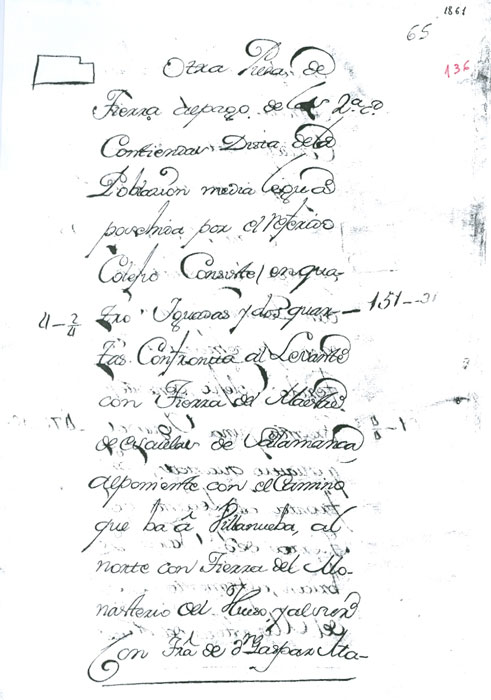 1861
65
136
Otra Pieza de
Tierra al pago de las 2ª cº
Contiendas Dista dela
Poblazion media legua
posehida por el referido
Colejio Consiste en qua-
4-2/4 tro Iguadas y dos quar- 151-
tas Confronta al Levante
con Tierra del Maestre
de escuelas de Salamanca
alponiente con el Camino
que ba â Villanueba, al
norte con Tierra del Mo-
nasterio del y al sur
Con Trâ de dn Gaspar Ma-